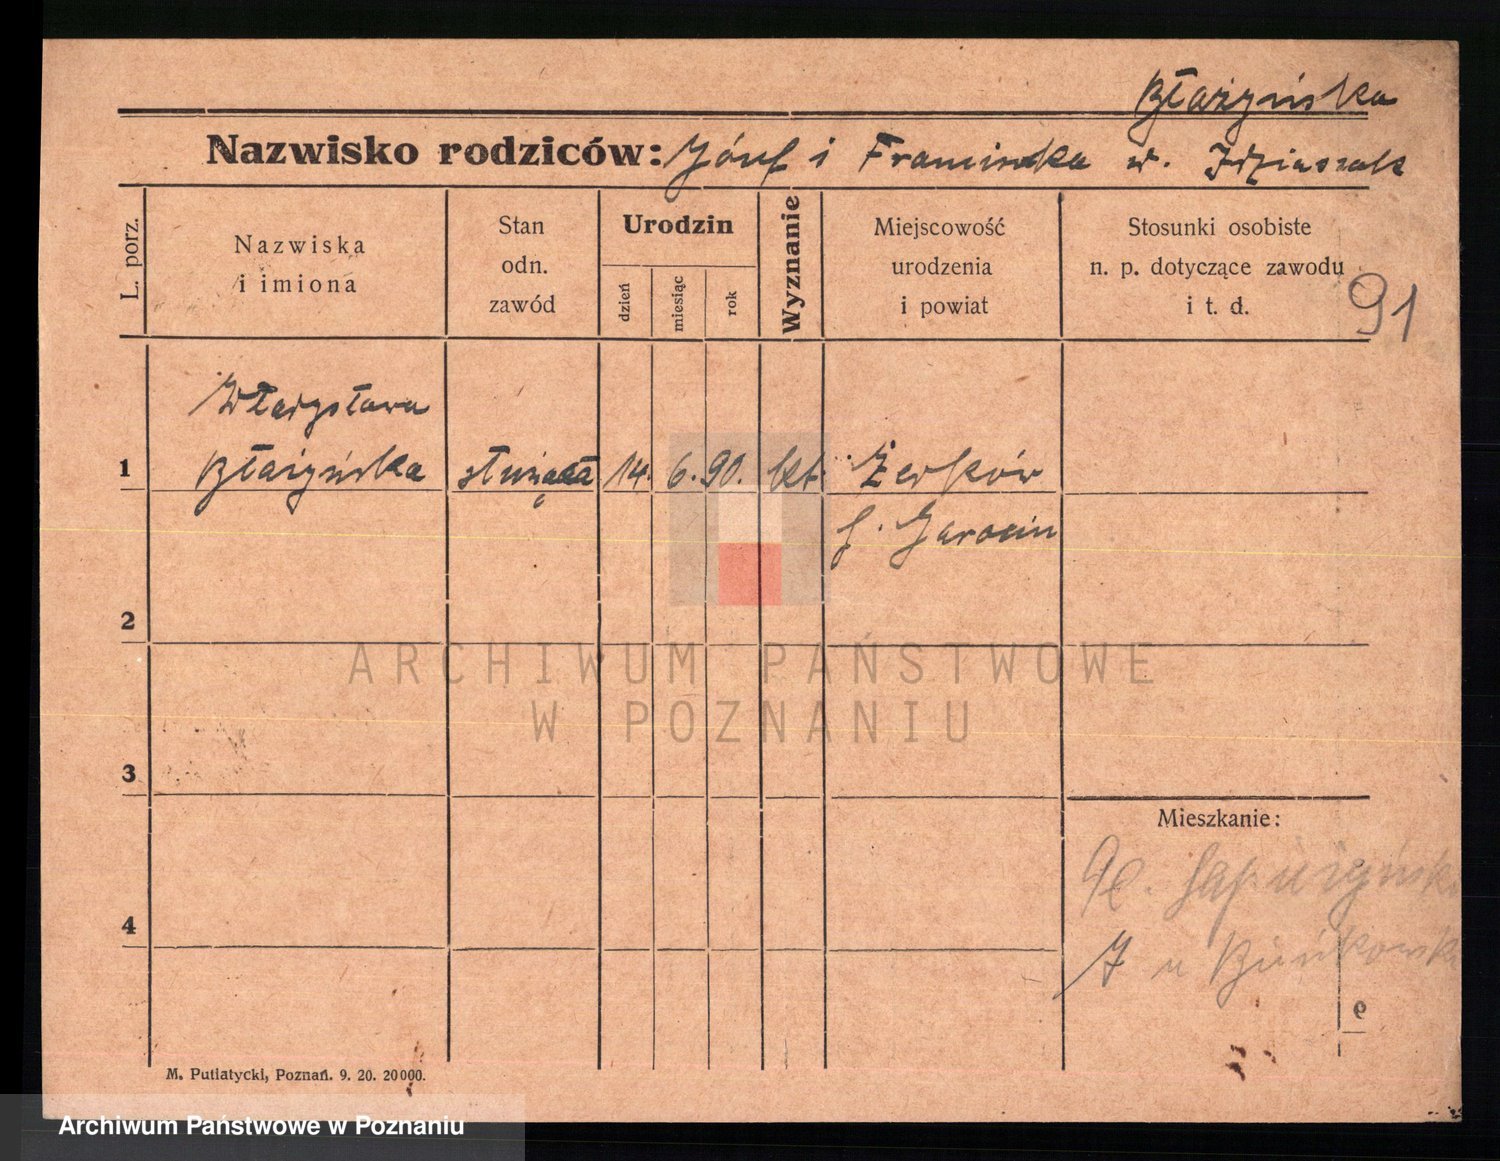 Błażyńska
Nazwisko rodziców: Józef i Franciszka z. Idziaszak
L. porz.
Nazwiska
i imiona
Stan
odn.
zawód
Urodzin
dzień
miesiąc
rok
Wyznanie
Miejscowość
urodzenia
i powiat
Stosunki osobiste
n. p. dotyczące zawodu
i t. d.
91
Władysława
1 Błażyńska służąca 14. 6. 90. kt. Żerków
p. Jarocin
2
3
4
Mieszkanie:
Pl. Sapieżyński
7 u
M. Putiatycki, Poznań. 9. 20. 20000.
ARCHIWUM PAŃSTWOWE
W POZNANIU
Archiwum Państwowe w Poznaniu